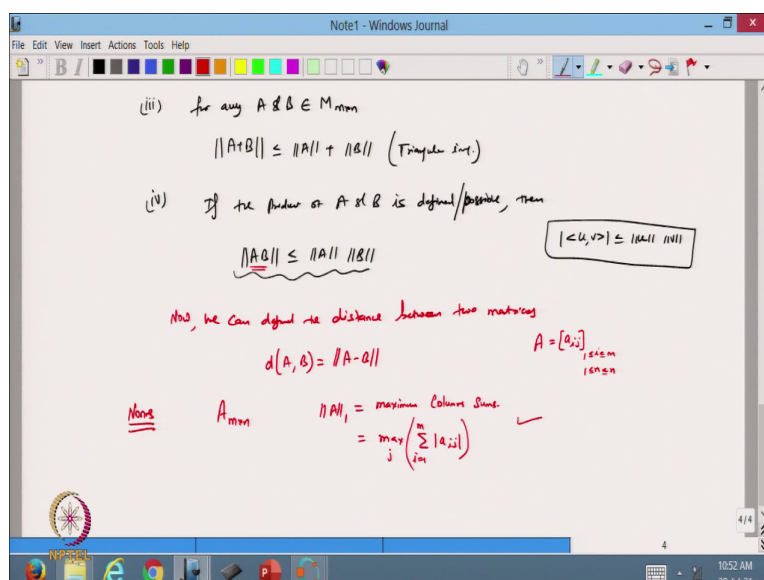 Note1 - Windows Journal
File Edit View Insert Actions Tools Help
(iii) for any A & B ∈ M_{m×n}
||A+B|| ≤ ||A|| + ||B|| (Triangular inq.)
(iv) If the product of A & B is defined/possible, then
||AB|| ≤ ||A|| ||B||
|<u,v>| ≤ ||u|| ||v||
Now, we can defined the distance between two matrices
d(A, B) = ||A-B||
A = [a_{ij}]
1≤i≤m
1≤n≤n
Norms A_{m×n} ||A||_1 = maximum Column Sums.
= max_j (∑_{i=1}^{m} |a_{ij}|)
NPTEL
4/4
4
10:52 AM